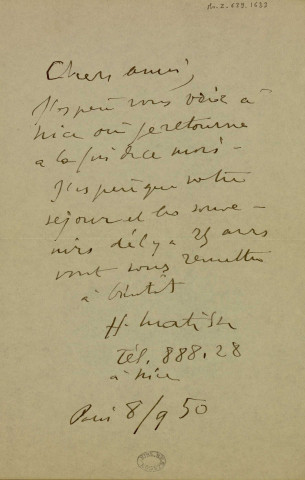 Chers amis,
J'espère vous voir à
Nice où je retourne
à la fin de ce mois –
J'espère que votre
séjour et les souve–
nirs d'il y a 25 ans
vont vous remettre
à bientôt
H. Matisse
Tél. 888.28
à Nice
Paris 8/9 50